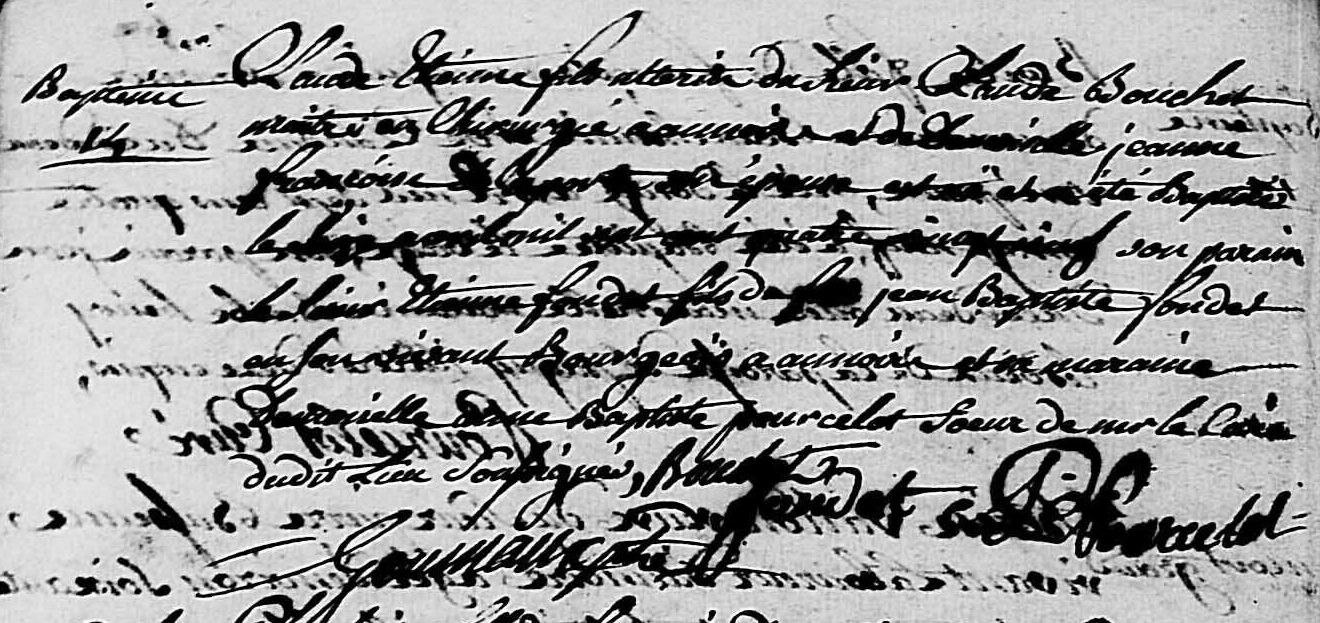 Baptême
14
Claude Etienne fils uterin du sieur Claude Bouchot
maitre en Chirurgie a aumoire et de Demoiselle jeanne
françoise son épouse, est né et a été Baptisé
le avril mil sept cent quatre vingt cinq son parain
le sieur Etienne foudet fils de feu jean Baptiste foudet
en son vivant Bourgeois a aumoire et sa maraine
Demoiselle anne Baptiste pourcelot soeur de mr le Curé
dudit Lieu soussignés, Bouchot
foudet Pourcelot